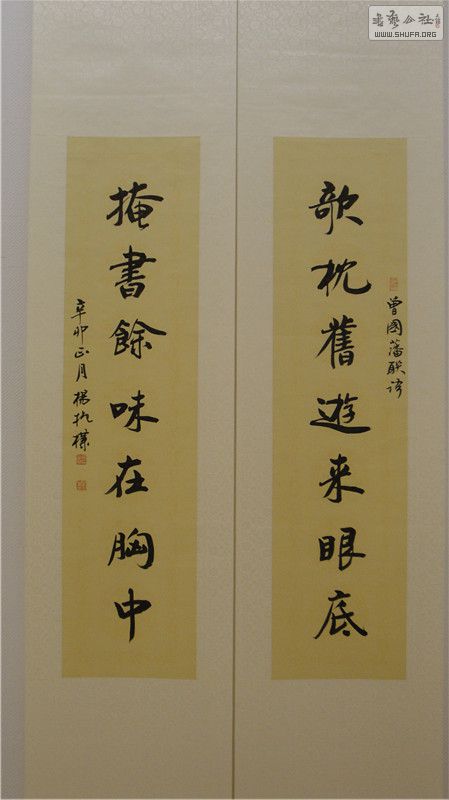 書藝公社
WWW.SHUFA.ORG
曾國藩联语
欹枕舊遊来眼底
掩書餘味在胸中
辛卯正月楊